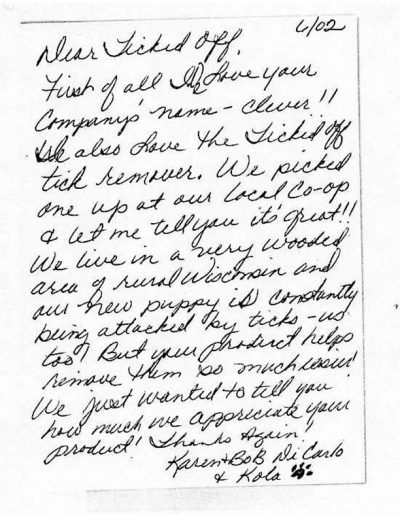 6/02
Dear Ticked Off,
First of all We Love your
Company's name - clever!!
We also Love the Ticked off
tick remover. We picked
one up at our local Co-op
& let me tell you it's great!!
We live in a very wooded
area of rural Wisconsin and
our new puppy is constantly
being attacked by ticks - us
too! But your product helps
remove them so much easier!
We just wanted to tell you
how much we appreciate your
product! Thanks Again!
Karen + Bob DiCarlo
& Kola